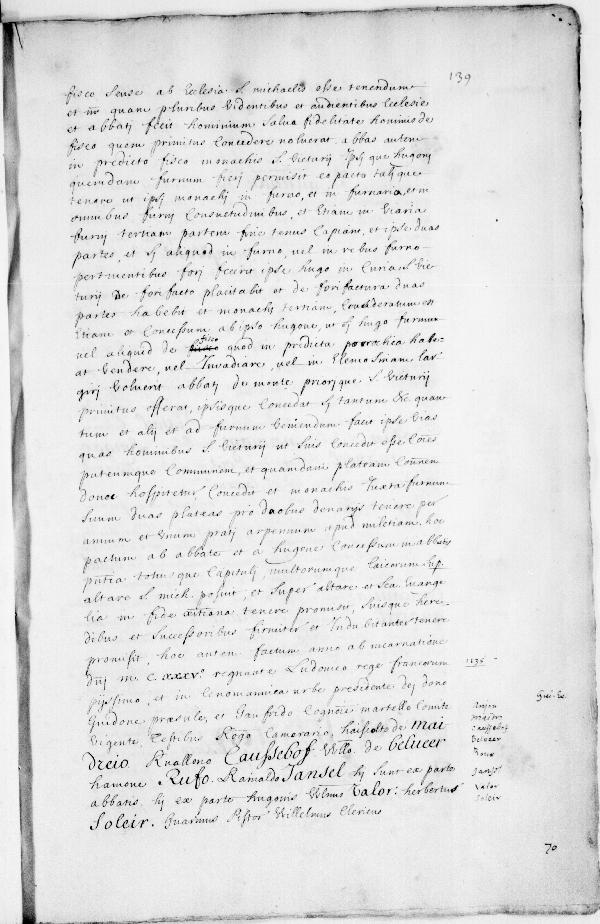 139
fisco seuse ab Ecclesia S. michaelis esse tenendum
et nris quam pluribus videntibus et audientibus Ecclesie
et abbatj fecit hominium salva fidelitate hominis de
fisco quem primitus Concedere noluerat, abbas autem
in predicto fisco monachis S. Victurij Ipsj que hugonj
quendam furnum fierj permisit eo pacto talj que
tenore ut ipsj monachj in furno, et in furnaria, et in
omnibus furnj Consuetudinibus, et Etiam in Viaria
furnj tertiam partem fine tenus Capiant, et ipse duas
partes, et sj aliquod in furno, vel in rebus furno
pertinentibus forj fecerit ipse hugo in Curia S. Vic-
turij De forifacto placitabit et de forifactura duas
partes habebit et monachj tertiam, Consideratum est
Etiam et Concessum ab ipso hugone, ut sj hugo furnum
vel aliquid de fisco quod in predicta parrochia habe-
at Vendere, vel Invadiare, vel in Elemosinam lar
girj Voluerit abbatj de monte priorj que S. Victurij
primitus offerat, ipsisque Concedat sj tantum dte quan
tum et alij et ad furnum Veniendum facit ipse Vias
quas hominibus S. Victurij ut suis Concedit esse Coies
puteumque Communem, et quamdam plateam
donec hospitetur Concedit et monachis Juxta furnum
suum duas plateas pro duobus denarijs tenere per
annum et Unum pratj arpennum apud miletiam, hoc
pactum ab abbate et a hugone Concessum in abbatis
putia totius que Capitulj, multorumque laicorum sup.
altare S. mich. posuit, et super altare et Sca Evange
lia in fide tenere promisit, suisque here-
dibus et successoribus firmiter et Indubitanter tenere
promisit, hoc autem factum anno ab incarnatione
Dnj m. C. XXXVo. regnante Ludovico rege francorum
pijssimo, et in Cenomannica urbe presidente dej dono
Guidone præsule, et Gaufrido Cognoie martello Comite
Vigente, Testibus Rogo Camerario, haisculto de mai
Dreio Ruallono Caussebof Willo. de belucer
hamone Rufo. Rainaldo Jansel hj sunt ex parte
abbatis hj ex parte hugonis Wlmus Valor. herbertus
Soleir. Guarinus Pistor Willelmus Clericus
1135
maidre
Caussebof
belucer
Rufus
Jansel
Valor
Soleir
70